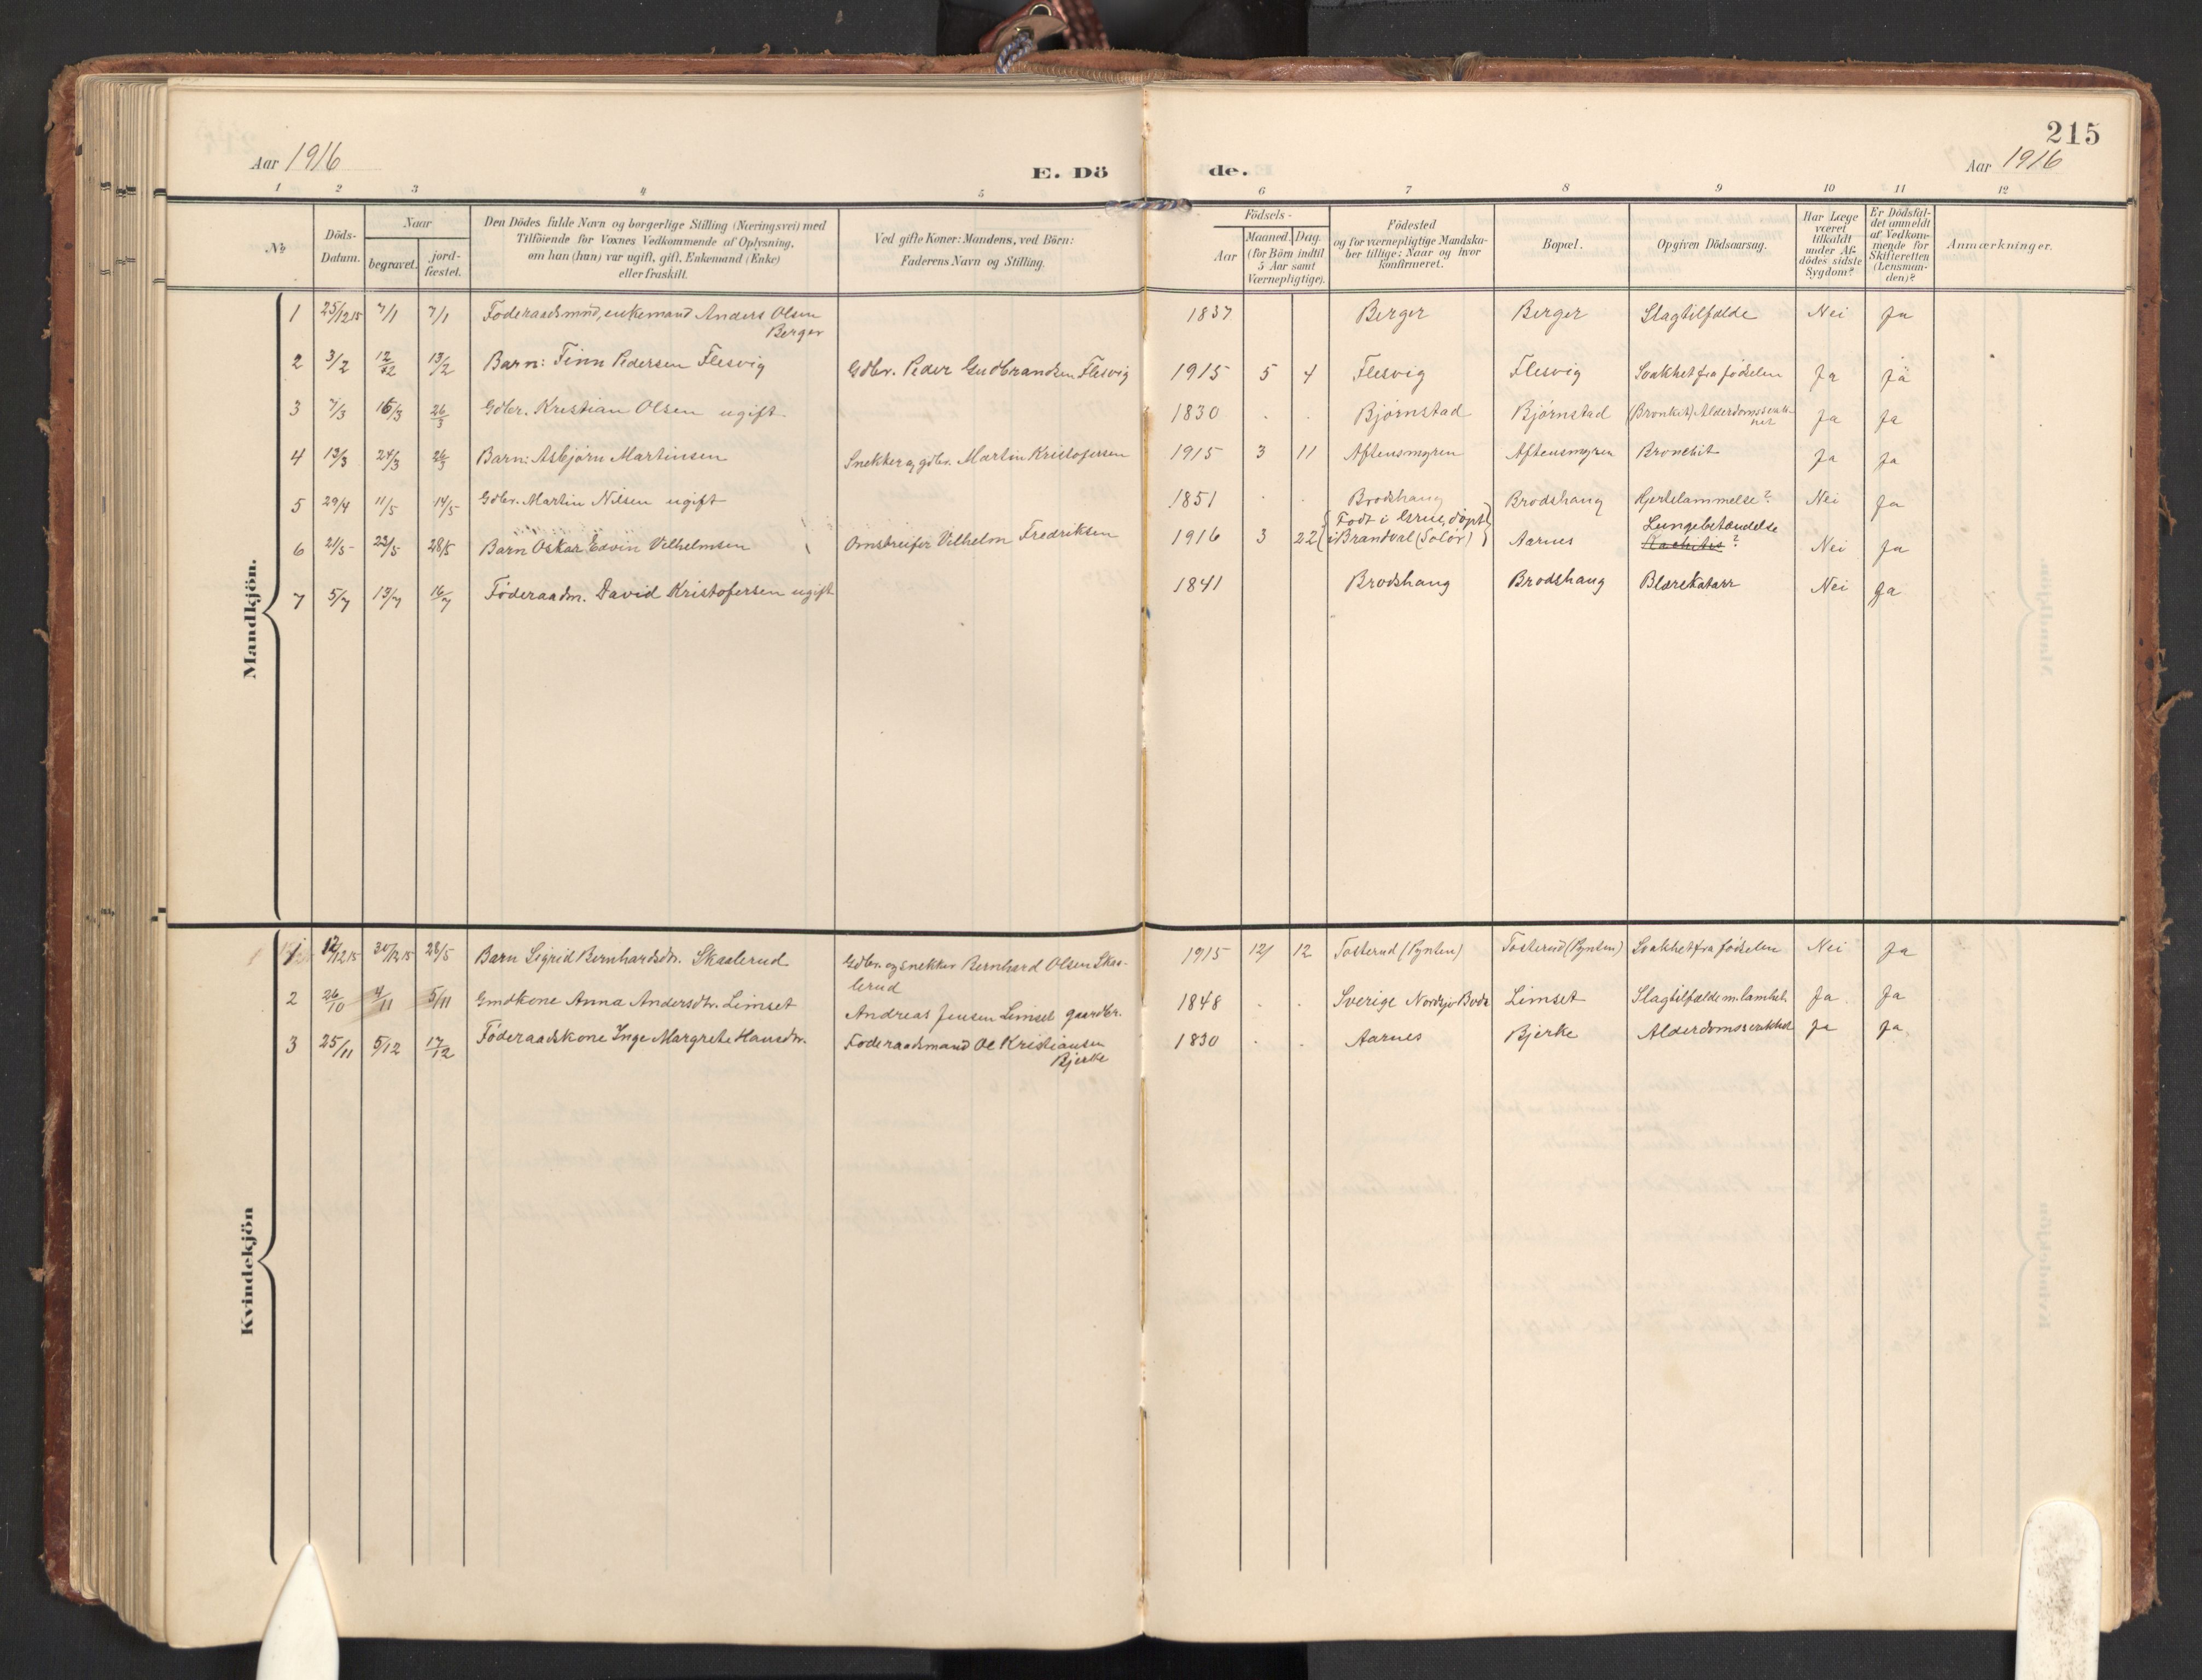 215
Aar 1916
E. Dö
de.
Aar 1916
1 2 3 4 5 6 7 8 9 10 11 12
№
Döds-
Datum.
Naar
begravet.
jord-
fæstet.
Den Dödes fulde Navn og borgerlige Stilling (Næringsvei) med
Tilföiende for Voxnes Vedkommende af Oplysning,
om han (hun) var ugift, gift, Enkemand (Enke)
eller fraskilt.
Ved gifte Koner: Mandens, ved Börn:
Faderens Navn og Stilling.
Födsels-
Aar
Maaned. Dag.
(for Börn indtil
5 Aar samt
Værnepligtige).
Födested
og for værnepligtige Mandska-
ber tillige: Naar og hvor
konfirmeret.
Bopæl.
Opgiven Dödsaarsag.
Har Læge
været
tilkaldt
under Af-
dödes sidste
Sygdom?
Er Dödsfal-
det anmeldt
af Vedkom-
mende for
Skifteretten
(Lensman-
den)?
Anmærkninger.
Mandkjön.
1 25/12 15 7/1 7/1 Føderaadsmnd, enkemand Anders Olsen 1837 Berger Berger Slagtilfælde Nei Ja
Berger
2 3/2 12/2 13/2 Barn: Finn Pedersen Flesvig Gdbr. Peder Gudbrandsen Flesvig 1915 5 4 Flesvig Flesvig Svakhet fra fødselen Ja Ja
3 7/3 16/3 26/3 Gdbr. Kristian Olsen ugift 1830 . . Bjørnstad Bjørnstad (Bronkit) Alderdomssvak-
het Ja Ja
4 13/3 24/3 26/3 Barn: Asbjørn Martinsen Snekker og gdbr. Martin Kristofersen 1915 3 11 Aftensmyren Aftensmyren Bronchit Ja Ja
5 29/4 11/5 14/5 Gdbr. Martin Nilsen ugift 1851 . . Brodshaug Brodshaug Hjertelammelse? Nei Ja
{Født i Grue, døpt} Lungebetændelse
6 21/5 23/5 28/5 Barn Oskar Edvin Vilhelmsen Omstreifer Vilhelm Fredriksen 1916 3 22 i Brandval (Solør) Aarnes Rachitis? Nei Ja
7 5/7 13/7 16/7 Føderaadm. David Kristofersen ugift 1841 Brodshaug Brodshaug Blærekatarr Nei Ja
Kvindekjön
1 12/12 15 30/12 15 28/5 Barn Sigrid Bernhardsdtr. Skaalerud Gdbr. og snekker Bernhard Olsen Skaa-
lerud 1915 12 12 Tosterud (Pynten) Tosterud (Pynten) Svakhet fra fødselen Nei Ja
2 26/10 4/11 5/11 Gmdkone Anna Andersdtr. Limset Andreas Jensen Limset gaardbr. 1848 . . Sverige Limset Slagtilfælde m. lamhet. Ja Ja
3 25/11 5/12 17/12 Føderaadskone Inge Margrete Hansdtr. Føderaadsmand Ol Kristiansen 1830 . . Aarnes Bjerke Alderdomssvakhet Ja Ja
Bjerke